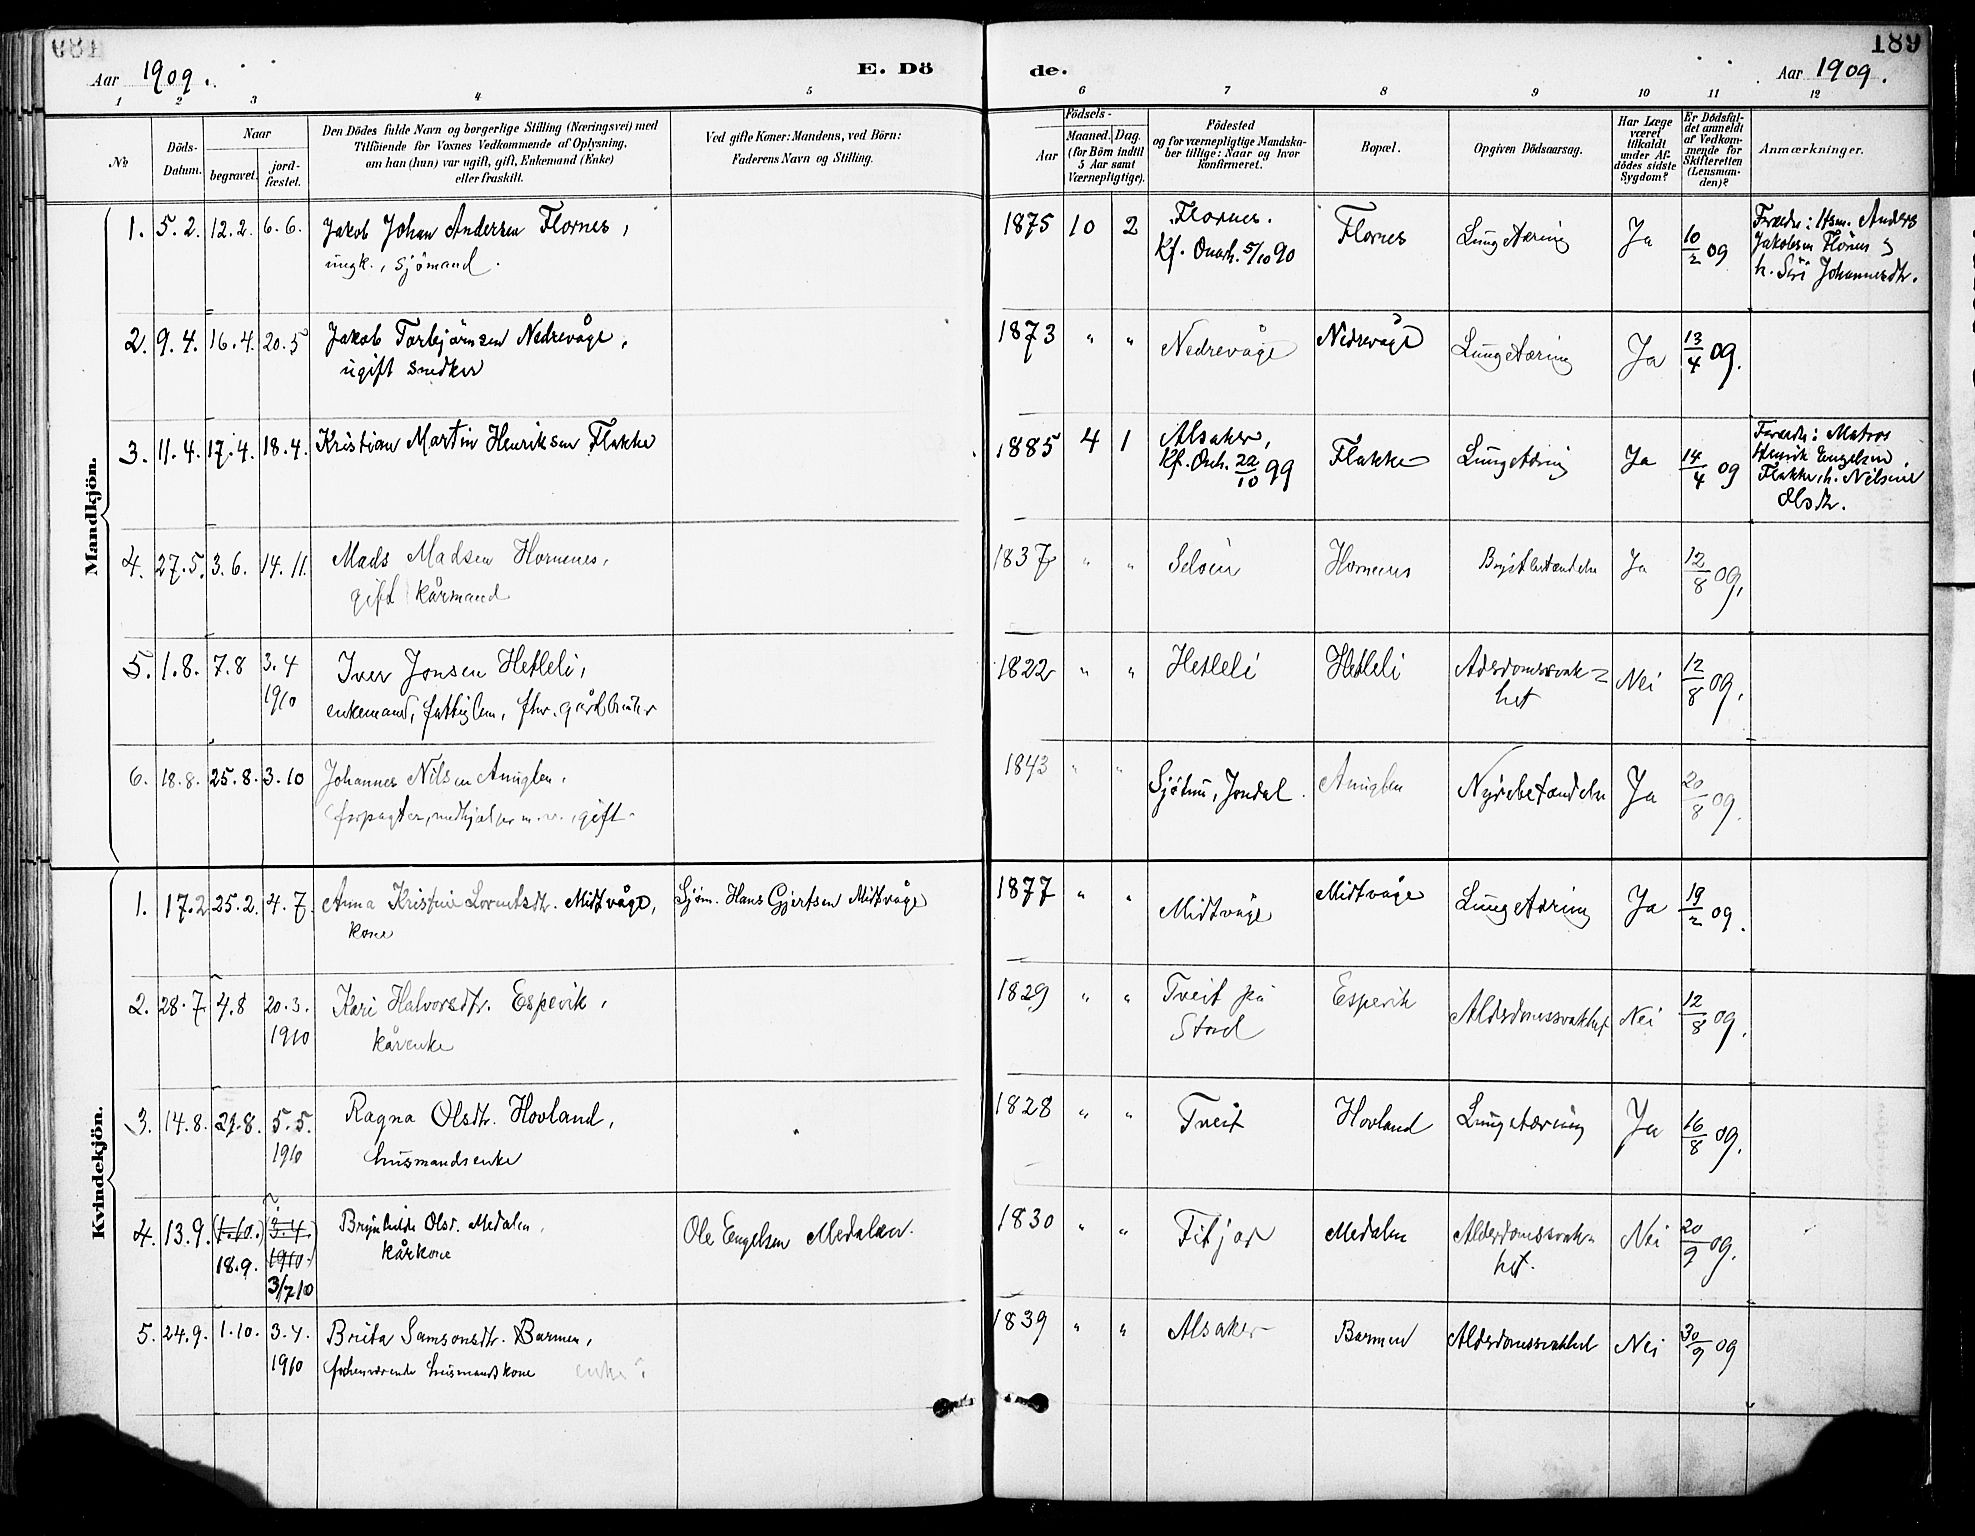 189
Aar 1909.
E. Dö
de.
Aar 1909.
1 2 3 4 5 6 7 8 9 10 11 12
No
Döds-Datum.
Naar
begravet.
jord-fæstet.
Den Dödes fulde Navn og borgerlige Stilling (Næringsvei) med
Tilföiende for Voxnes Vedkommende af Oplysning,
om han (hun) var ugift, gift, Enkemand (Enke)
eller fraskilt.
Ved gifte Koner: Mandens, ved Börn:
Faderens Navn og Stilling.
Födsels-
Aar
Maaned. Dag.
(for Börn indtil
5 Aar samt
Værnepligtige).
Födested
og for værnepligtige Mandska-
ber tillige: Naar og hvor
konfirmeret.
Bopæl.
Opgiven Dödsaarsag.
Har Læge
været
tilkaldt
under Af-
dödes sidste
Sygdom?
Er Dödsfal-
det anmeldt
af Vedkom-
mende for
Skifteretten
(Lensman-
den)?
Anmærkninger.
Mandkjön.
1. 5.2. 12.2. 6.6. Jakob Johan Andersen Flornes,
ungk., sjömand.
1875 10 2 Flornes.
Kf. 5/10 90
Flornes Lungetæring Ja 10/2 09
Forældre: Hsm. Anders
Jakobsen Flornes og
h. Siri Johannesdtr.
2. 9.4. 16.4. 20.5 Jakob Torbjörnsen Nedrevåge,
ugift snedker
1873 " " Nedrevåge Nedrevåge Lungetæring Ja 13/4 09.
3. 11.4. 17.4. 18.4. Kristian Martin Henriksen Flakke
1885 4 1 Alsaker,
Kf. Onh. 22/10 99
Flakke Lungetæring Ja 14/4 09
Forældre: Matros
Henrik Engelsen
Flakke, h. Nilsine
Olsdtr.
4. 27.5. 3.6. 14.11. Mads Madsen Hornenes,
gift kårmand
1837 " " Seløen Hornenes Brystbetændelse Ja 12/8 09,
5. 1.8. 7.8 3.4
1910
Iver Jonsen Hetleli,
enkemand, fattiglem, fhv. gårdbruker
1822 " " Hetleli Hetleli Alderdomssvak-
het
Nei 12/8 09,
6. 18.8. 25.8. 3.10 Johannes Nilsen Amuglen,
forpagter, medhjælper m.v., gift.
1843 " " Sjötun, Jondal. Amuglen Nyrebetændelse Ja 20/8 09.
Kvindekjön.
1. 17.2 25.2. 4.7. Anna Kristine Lorentsdtr. Midtvåge,
kone
Sjöm. Hans Gjertsen Midtvåge
1877 " " Midtvåge Midtvåge Lungetæring Ja 19/2 09.
2. 28.7. 4.8 20.3.
1910
Kari Halvorsdtr. Espevik,
kårenke
1829 " " Tveit på
Stord
Espevik Alderdomssvakhet Nei 12/8 09.
3. 14.8. 21.8. 5.5.
1910
Ragna Olsdtr. Hovland,
husmandsenke
1828 " " Tveit Hovland Lungetæring Ja 16/8 09.
4. 13.9. (1.10.) (3.4
1910)
18.9. 3/7 10
Brynhilde Olsd. Medalen,
kårkone
Ole Engelsen Medalen.
1830 " Fitjar Medalen Alderdomssvak-
het.
Nei 20/9 09.
5. 24.9. 1.10. 3.4.
1910
Brita Samsonsdtr. Barmen,
forhenværende husmandskone enke?
1839 " " Alsaker Barmen Alderdomssvakhet Nei 30/9 09